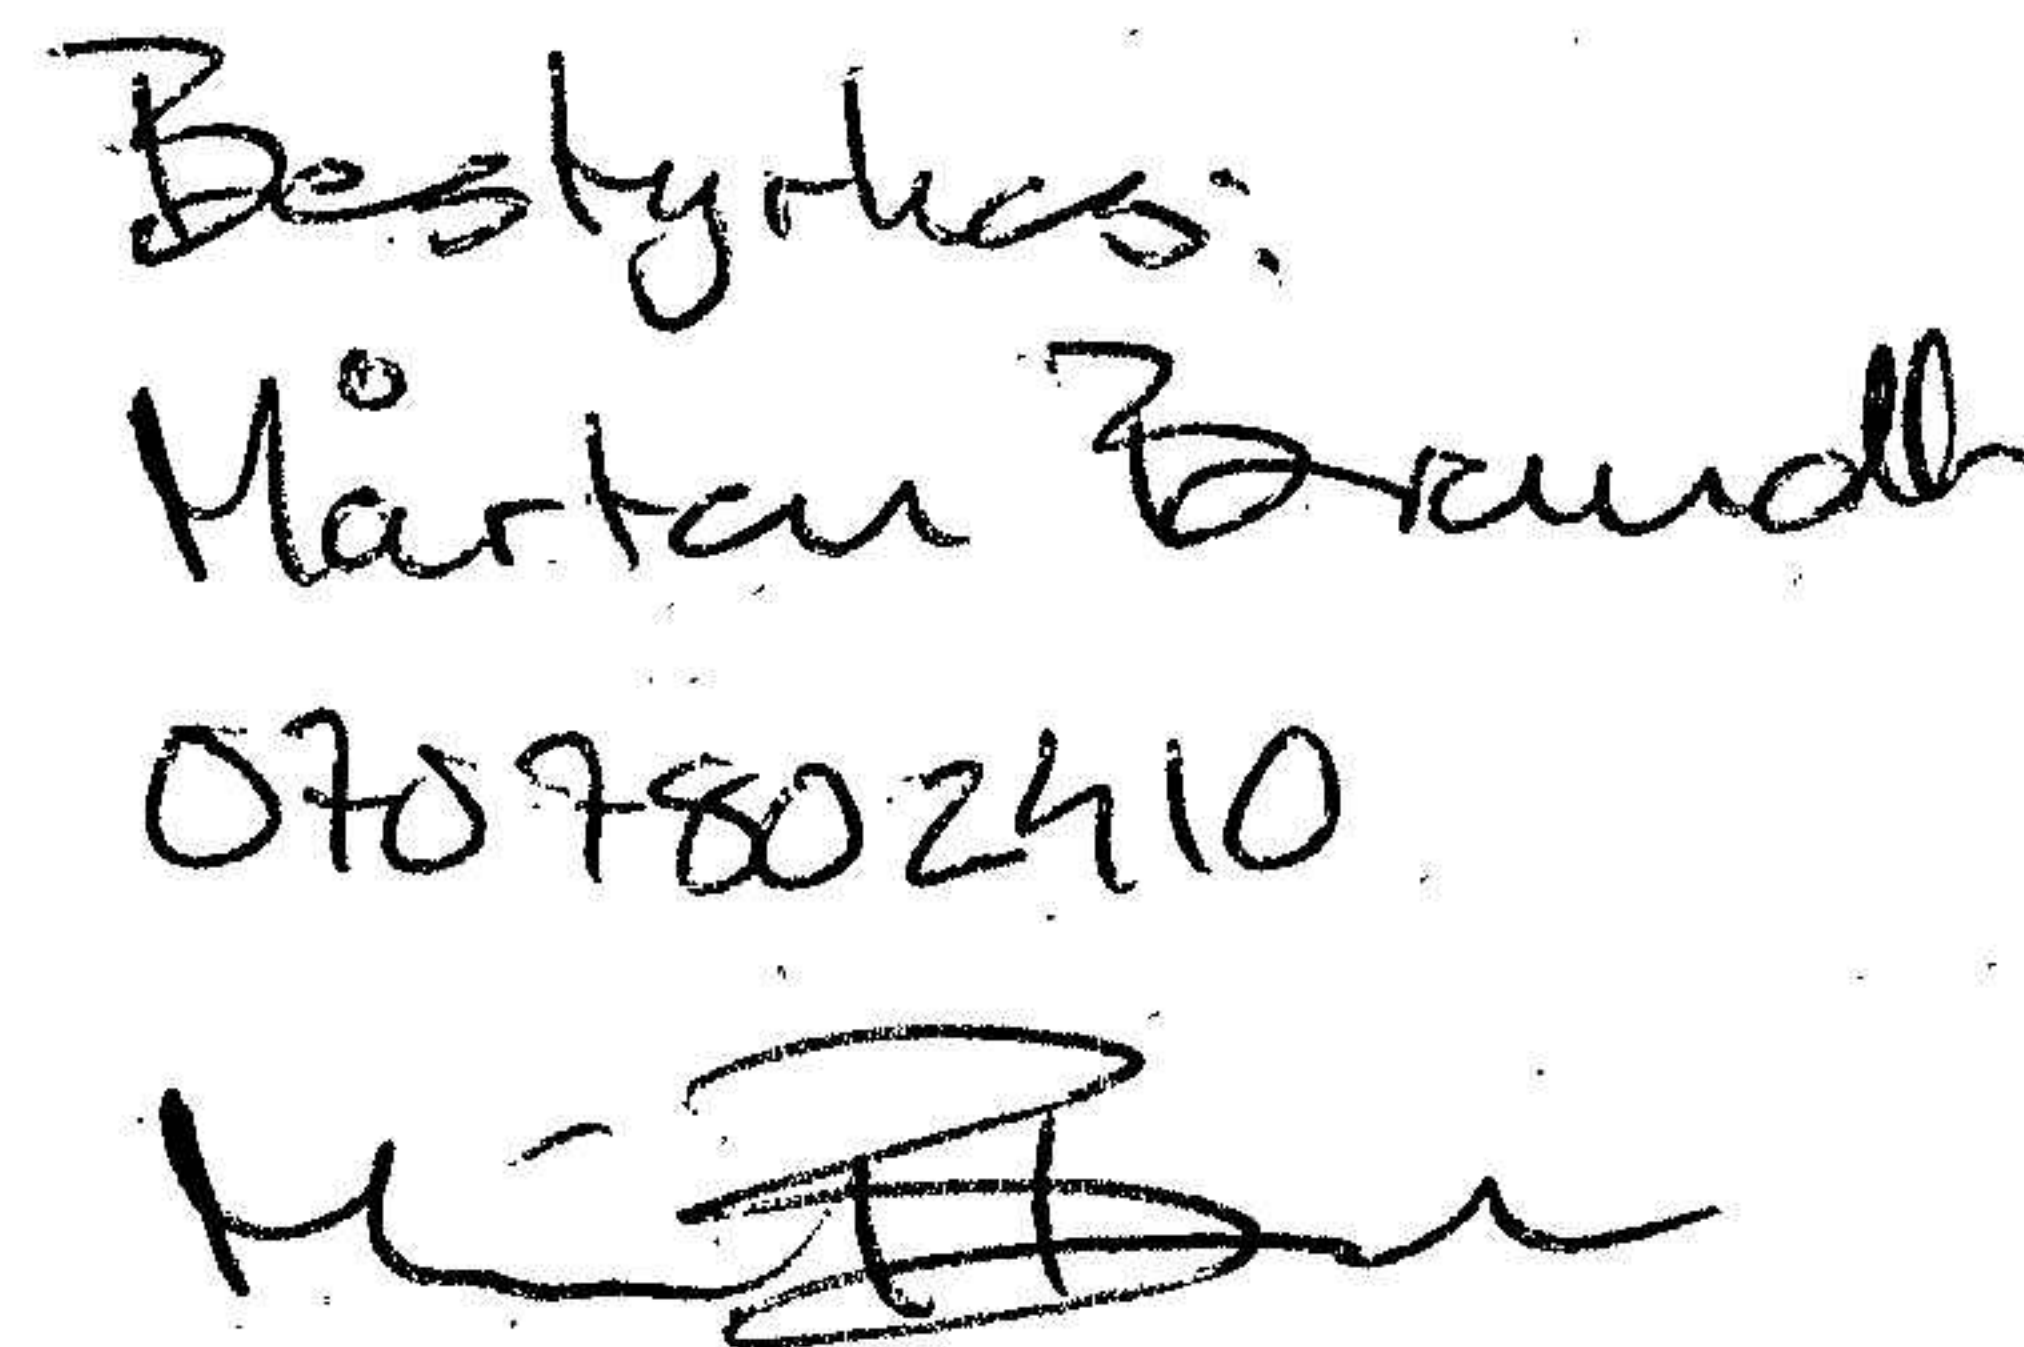 Bestyrkes:
Mårten
0707802410